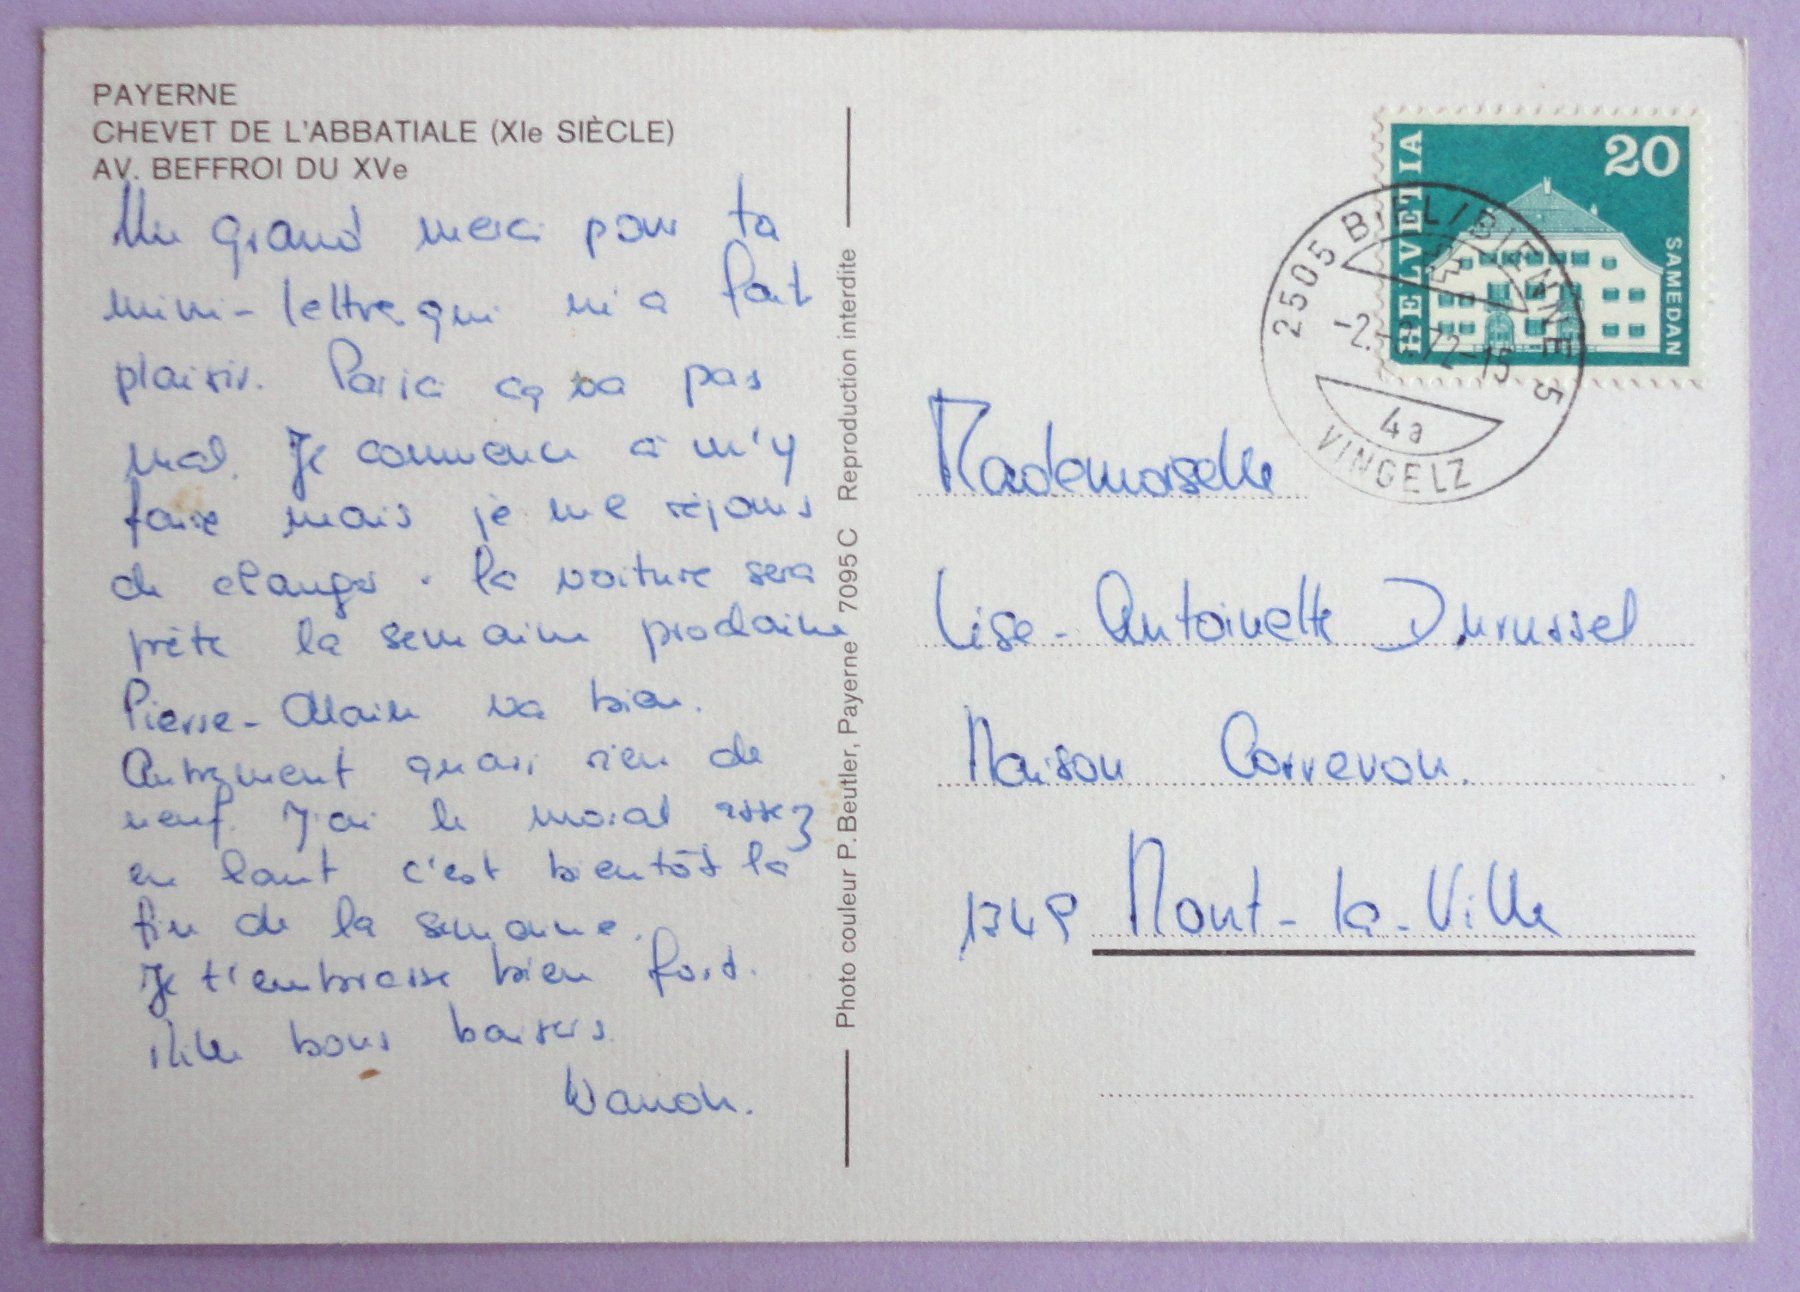 PAYERNE
CHEVET DE L'ABBATIALE (XIe SIÈCLE)
AV. BEFFROI DU XVe
Un grand merci pour ta
mini-lettre qui m'a fait
plaisir. Par ici ça va pas
mal. Je commence à m'y
faire mais je me réjouis
de changer. La voiture sera
prête la semaine prochaine
Pierre-Alain va bien.
Autrement quasi rien de
neuf. J'ai le moral assez
en haut c'est bientôt la
fin de la semaine.
Je t'embrasse bien fort.
Mille bons baisers.
Photo couleur P. Beutler, Payerne 7095 C Reproduction interdite
HELVETIA
20
SAMEDAN
2505 BIEL/BIENNE 5
-2. 72-15
4a
VINGELZ
Mademoiselle
Lise-Antoinette Durussel
Maison Correvon.
1349 Mont-la-Ville